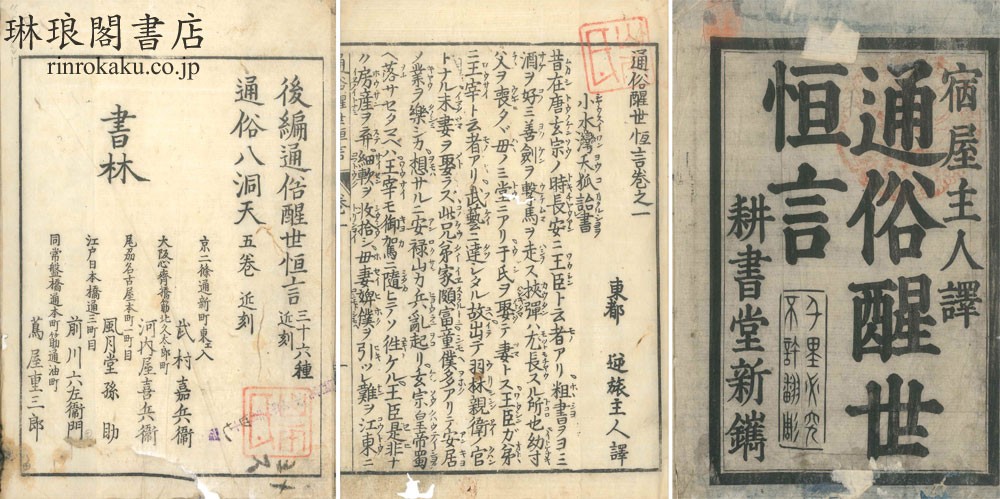 琳琅閣書店
rinrokaku.co.jp
宿屋主人譯
通俗醒世
恒言
千里必究
不許翻彫
耕書堂新鐫
通俗醒世恒言巻之一
小水灣天狐詒書
東都 逆旅主人譯
昔在唐玄宗ノ時長安ニ王臣ト云者アリ粗書ヲヨミ
酒ヲ好ミ善劍ヲ撃馬ヲ走ス挾彈ハ尤長スル所也幼
父ヲ喪タヾ母ノミ堂ニアリ于氏ヲ娶テ妻トス王臣ガ弟
ニ王宰ト云者アリ武藝ニ達シタル故出テ羽林親衛ノ官
トナル未妻ヲ娶ラズ此兄弟家頗富童僕多アリテ安居
ノ業ヲ樂シカ想サルニ安禄山カ兵乱起リ玄宗皇帝蜀
ヘ落サセタマヘハ王宰モ御駕ニ隨ヒテソ往ケル王臣是非ナ
ク房産ヲ弃細軟ヲ收拾シ母妻婢僕ヲ引ツレ難ヲ江東ニ
通俗醒世恒言 巻一
後編通俗醒世恒言 三十六種 近刻
通俗八洞天 五卷 近刻
書林
京二條通新町東エ入
武村嘉兵衞
大阪心齋橋筋北久太郎町
河内屋喜兵衞
尾州名古屋本町一町目
風月堂孫助
江戸日本橋通三町目
前川六左衞門
同常盤橋通本町筋通油町
蔦屋重三郎